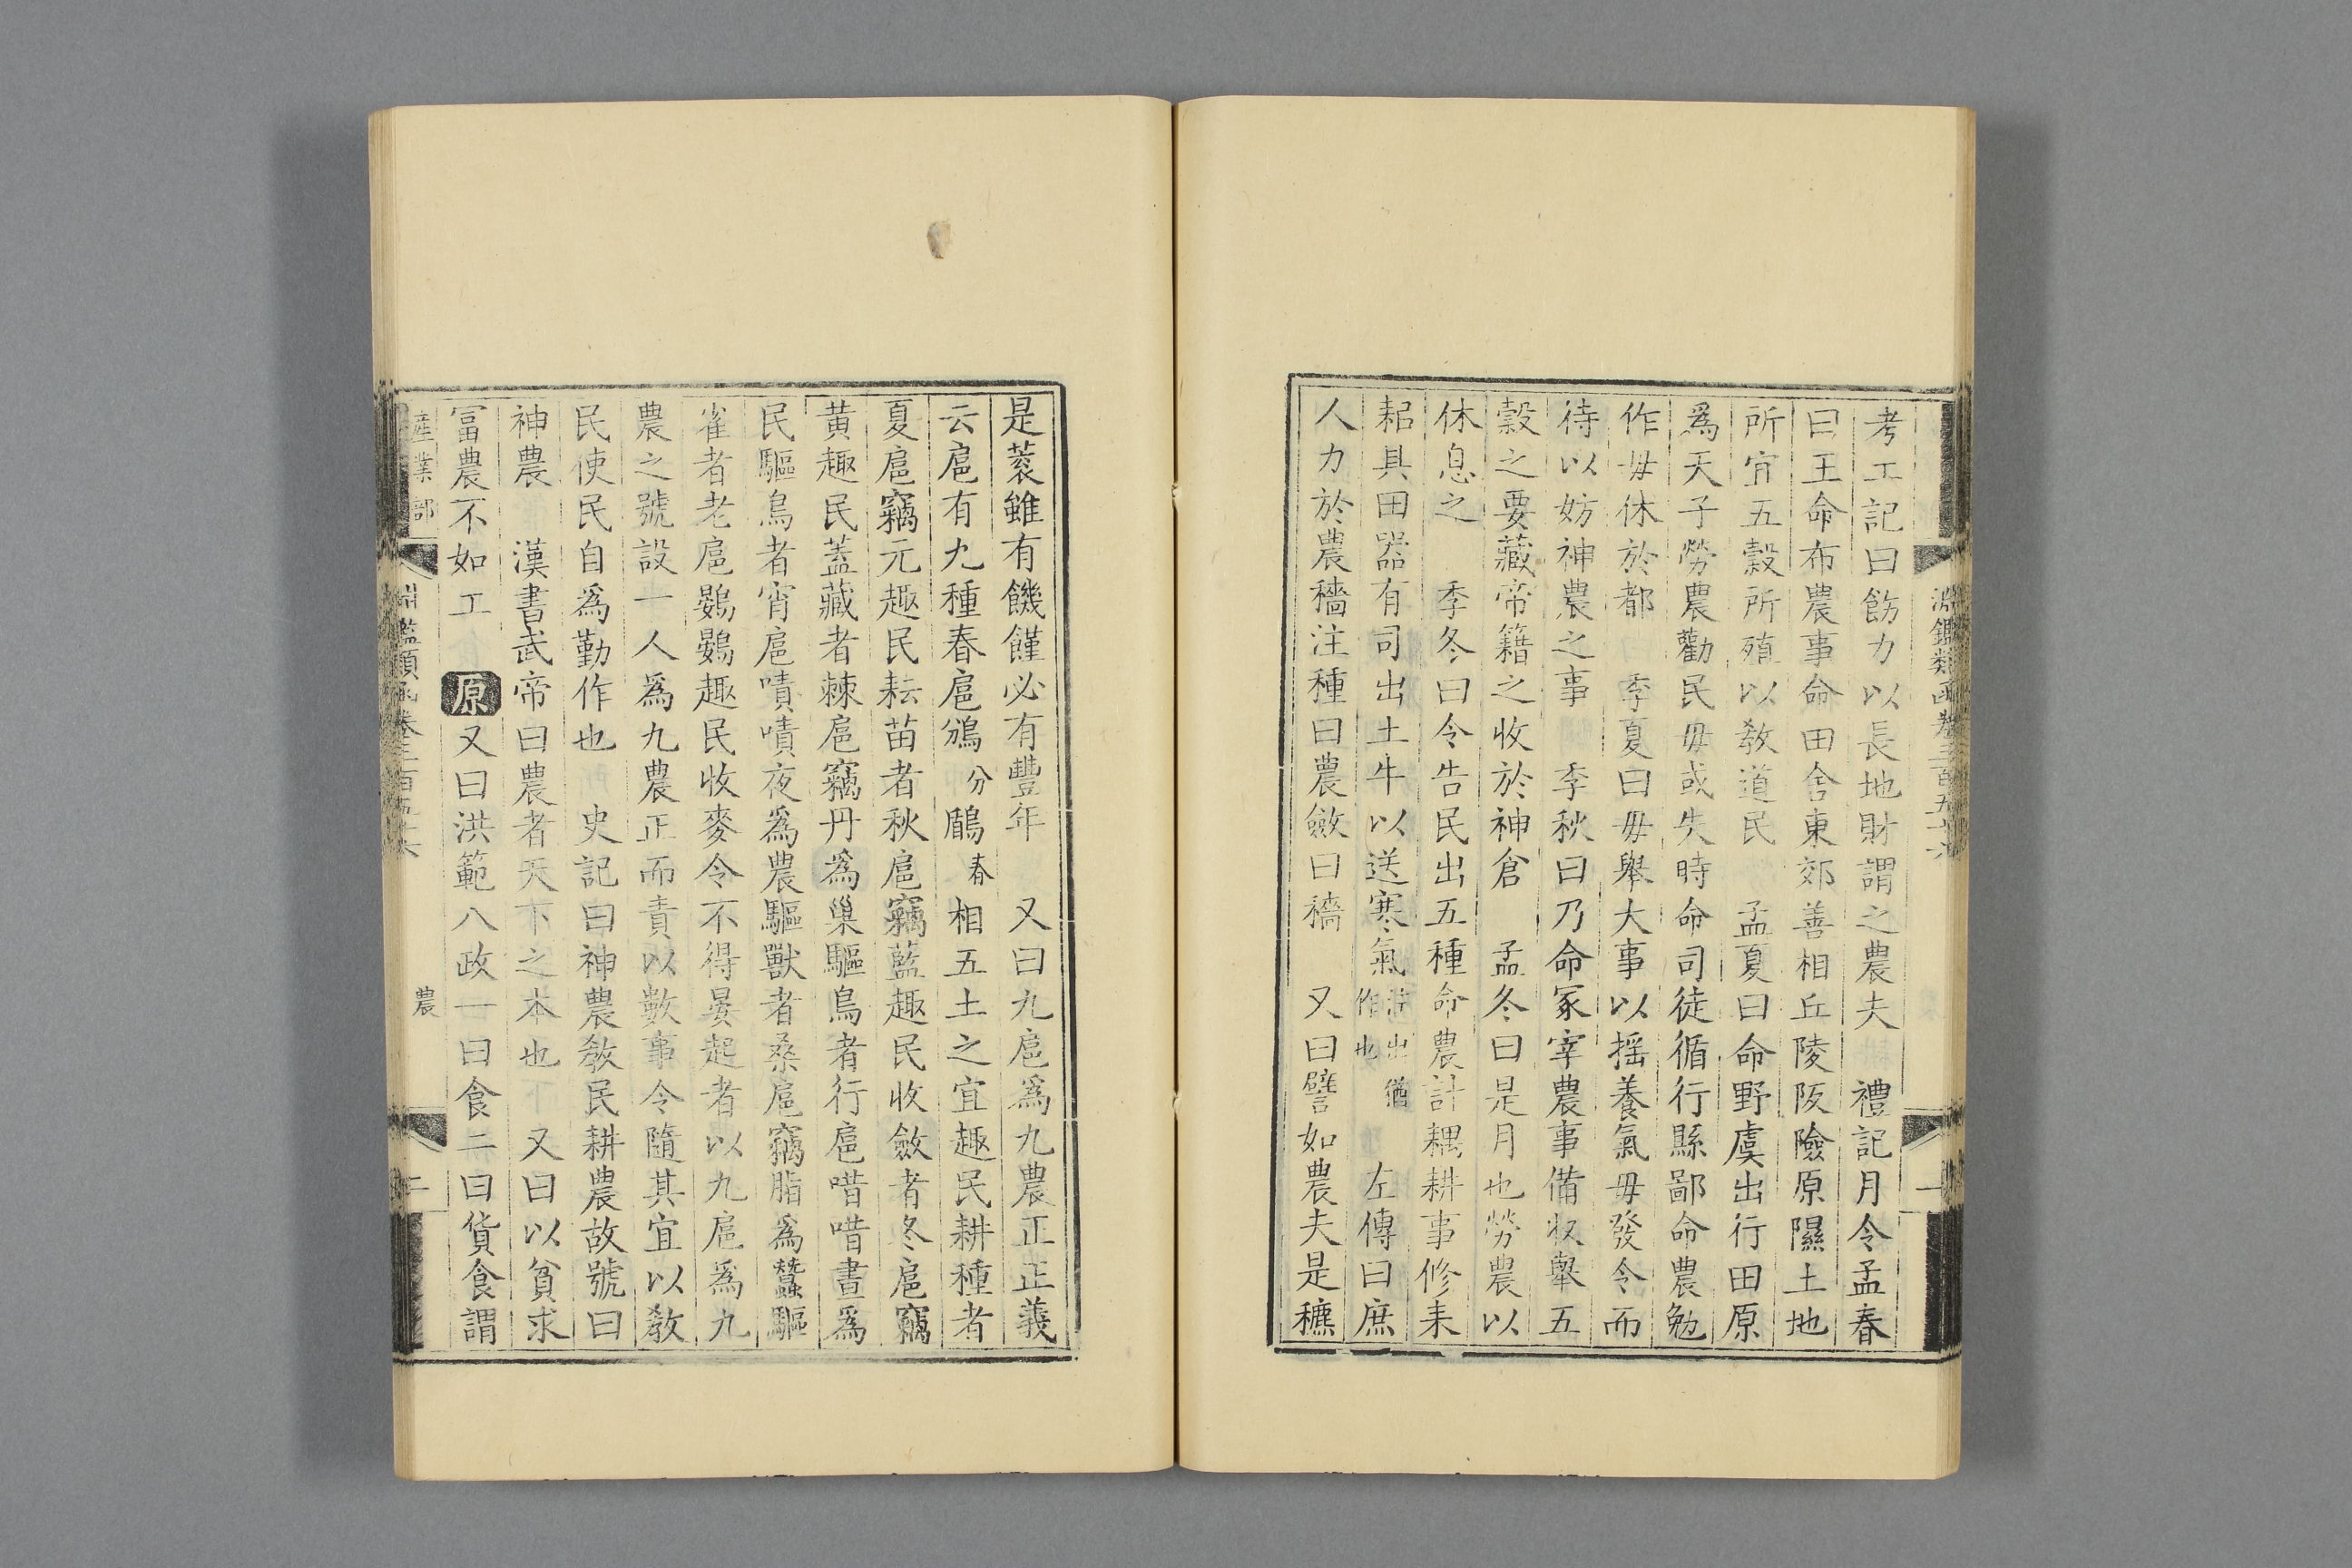 考工記曰飭力以長地財謂之農夫　禮記月令孟春
曰王命布農事命田舍東郊善相丘陵阪險原隰土地
所宜五穀所殖以教道民　孟夏曰命野虞出行田原
爲天子勞農勸民毋或失時命司徒循行縣鄙命農勉
作毋休於都　季夏曰毋舉大事以揺養氣毋發令而
待以妨神農之事　季秋曰乃命冢宰農事備收舉五
穀之要藏帝籍之收於神倉　孟冬曰是月也勞農以
休息之　季冬曰令告民出五種命農計耦耕事修耒
耜具田器有司出土牛以送寒氣注出猶作也　左傳曰庶
人力於農穡注種曰農斂曰穡　又曰譬如農夫是穮
是蓘雖有饑饉必有豐年　又曰九扈爲九農正正義
云扈有九種春扈鳻分鶞春相五土之宜趣民耕種者
夏扈竊元趣民耘苗者秋扈竊藍趣民收斂者冬扈竊
黄趣民蓋藏者棘扈竊丹爲巢驅鳥者行扈唶唶晝爲
民驅鳥者宵扈嘖嘖夜爲農驅獸者桑扈竊脂爲蠶驅
雀者老扈鷃鷃趣民收麥令不得晏起者以九扈爲九
農之號設一人爲九農正而責以數事令隨其宜以教
民使民自爲勤作也　史記曰神農教民耕農故號曰
神農　漢書武帝曰農者天下之本也　又曰以貧求
冨農不如工　原又曰洪範八政一曰食二曰貨食謂
產業部
淵鑑類函卷三百五十六
農
二